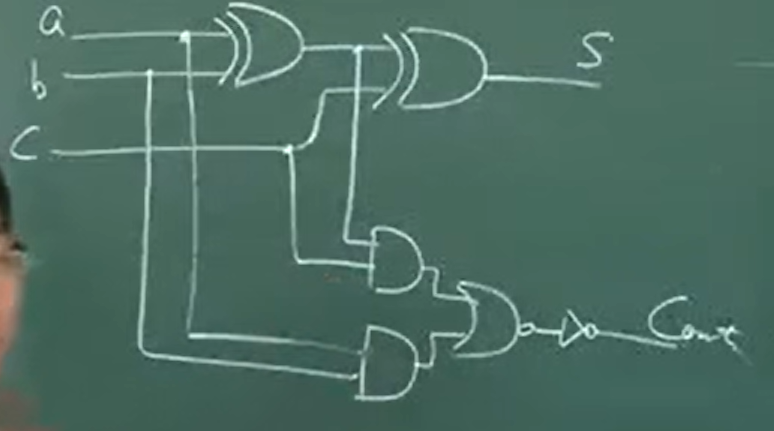 a
b
C
S
Cout